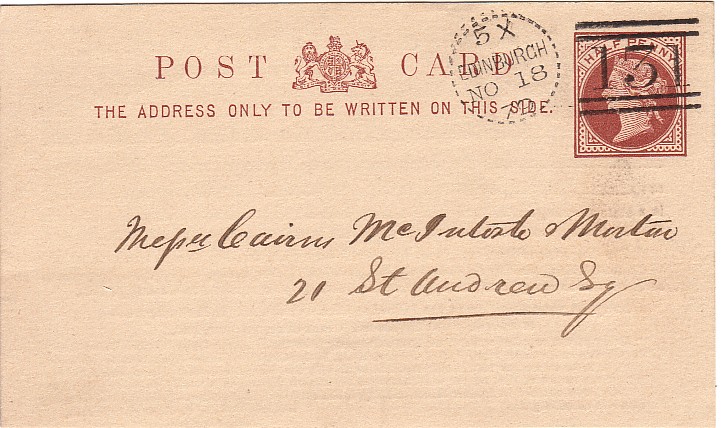 POST CARD
THE ADDRESS ONLY TO BE WRITTEN ON THIS SIDE.
5 X
EDINBURGH
NO 18
HALFPENNY
131
Messrs Cairns McIntosh & Morton
20 St Andrew Sq